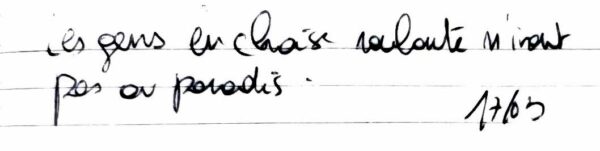 les gens en chaise roulante n'iront
pas au paradis.
17/03